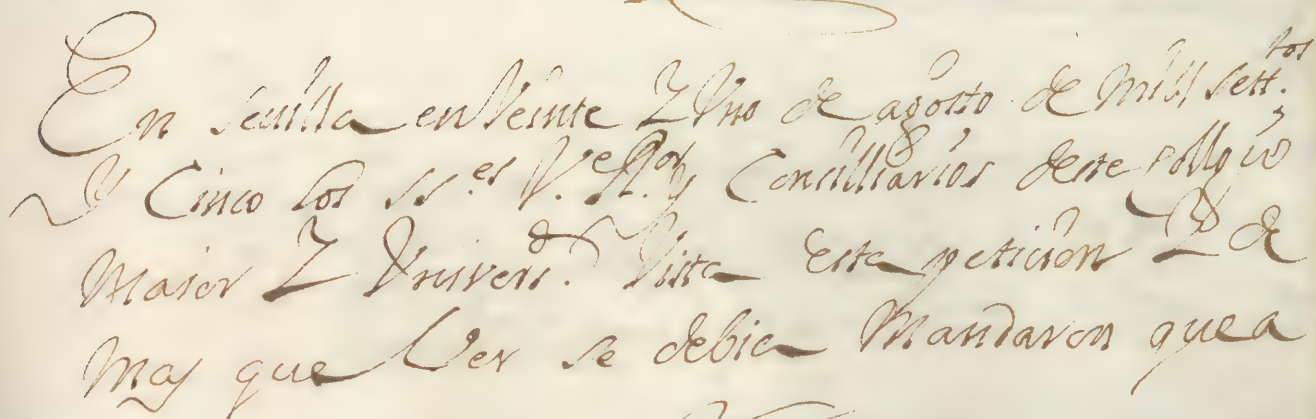 En Seuilla en Veinte Y Vno de agosto de mill settos
Y Cinco los sses V.e R.or y Consiliarios deste Collegio
Maior Y Vniversd. Vista esta peticion Y lo de
mas que Ver se debia Mandaron que a